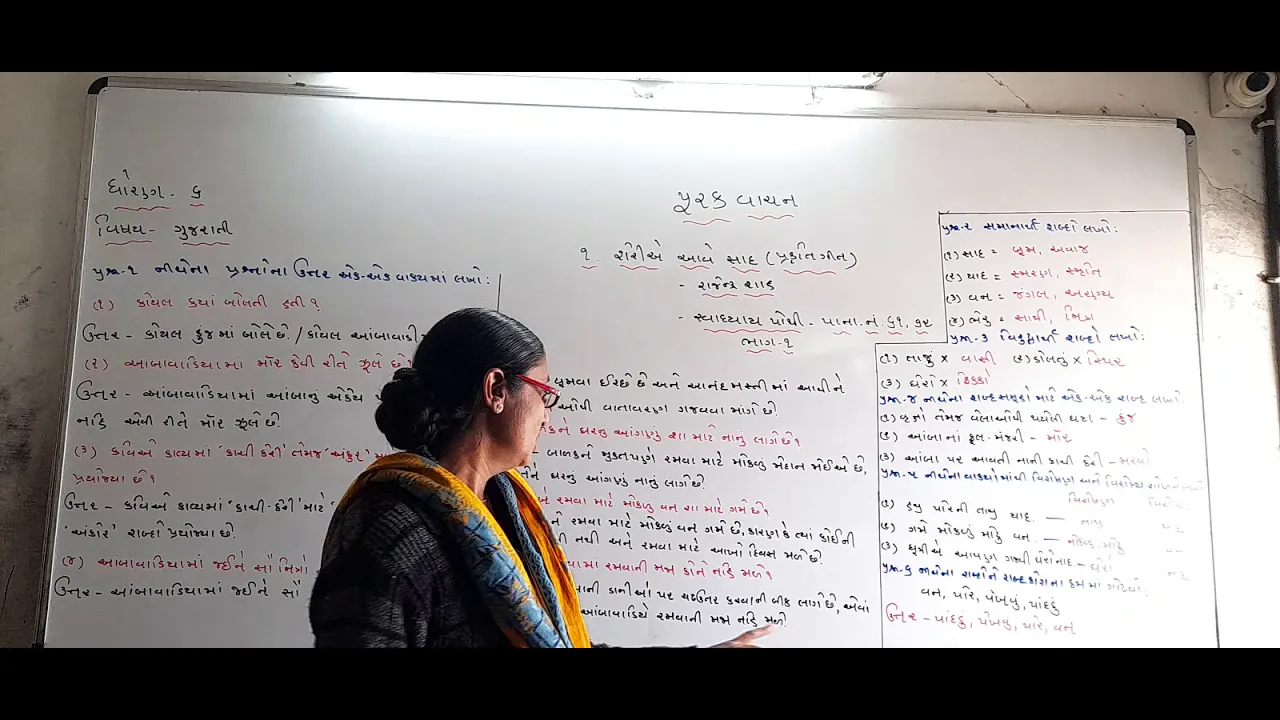 ધોરણ - ૬
વિષય - ગુજરાતી
પૂરક વાચન
૧. શેરીએ આવે સાદ (પ્રકૃતિગીત)
- રાજેન્દ્ર શાહ
- સ્વાધ્યાય પોથી - પાના.નં. ૬૧, ૬૨
ભાગ-૧
પ્રશ્ન-૧ નીચેના પ્રશ્નોના ઉત્તર એક-એક વાક્યમાં લખો:
(૧) કોયલ ક્યાં બોલતી હતી ?
ઉત્તર - કોયલ કુંજમાં બોલે છે. / કોયલ આંબાવાડી
(૨) આંબાવાડિયામાં મૉર કેવી રીતે ઝૂલે છે ?
ઉત્તર - આંબાવાડિયામાં આંબાનું એકેય
નહિ એવી રીતે મૉર ઝૂલે છે.
(૩) કવિએ કાવ્યમાં 'કાચી કેરી' તેમજ 'અંકુર'
પ્રયોજ્યા છે ?
ઉત્તર - કવિએ કાવ્યમાં 'કાચી-કેરી' માટે
'અંકોર' શબ્દો પ્રયોજ્યા છે.
(૪) આંબાવાડિયામાં જઈને સૌ મિત્રો
ઉત્તર - આંબાવાડિયામાં જઈને સૌ
ઘૂમવા ઈચ્છે છે અને આનંદમસ્તીમાં આવીને
વાતાવરણ ગજવવા માંગે છે.
ઘરનું આંગણું શા માટે નાનું લાગે છે ?
બાળકને મુક્તપણે રમવા માટે મોકળું મેદાન જોઈએ છે,
ઘરનું આંગણું નાનું લાગે છે.
રમવા માટે મોકળું વન શા માટે ગમે છે ?
રમવા માટે મોકળું વન ગમે છે, કારણ કે ત્યાં કોઈની
નથી અને રમવા માટે આખો દિવસ મળે છે.
રમવાની મજા કોને નહિ મળે ?
ડાળીઓ પર ચડઉતર કરવાની બીક લાગે છે, એવાં
આંબાવાડિયે રમવાની મજા નહિ મળે.
પ્રશ્ન-૨ સમાનાર્થી શબ્દો લખો:
(૧) સાદ = બૂમ, અવાજ
(૨) યાદ = સ્મરણ, સ્મૃતિ
(૩) વન = જંગલ, અરણ્ય
(૪) ભેરુ = સાથી, મિત્ર
પ્રશ્ન-૩ વિરુદ્ધાર્થી શબ્દો લખો:
(૧) તાજું × વાસી (૨) કોલતું × સ્થિર
(૩) ઘેરો × ફિક્કો
પ્રશ્ન-૪ નીચેના શબ્દસમૂહો માટે એક-એક શબ્દ લખો:
(૧) વૃક્ષો તેમજ વેલાઓથી થયેલી ઘટા - કુંજ
(૨) આંબાનાં ફૂલ-મંજરી - મૉર
(૩) આંબા પર આવતી નાની કાચી કેરી - મરવો
પ્રશ્ન-૫ નીચેના વાક્યોમાંથી વિશેષણ અને વિશેષ્ય
વિશેષણ
(૧) હજી પોરની તાજી યાદ. - તાજી
(૨) ગમે મોકળું મોટું વન. - મોકળું, મોટું
(૩) ઘેરો નાદ - ઘેરો
પ્રશ્ન-૬ નીચેના શબ્દોને શબ્દકોશના ક્રમમાં ગોઠવો:
વન, પોર, પંખવું, પાંદડું
ઉત્તર - પાંદડું, પંખવું, પોર, વન